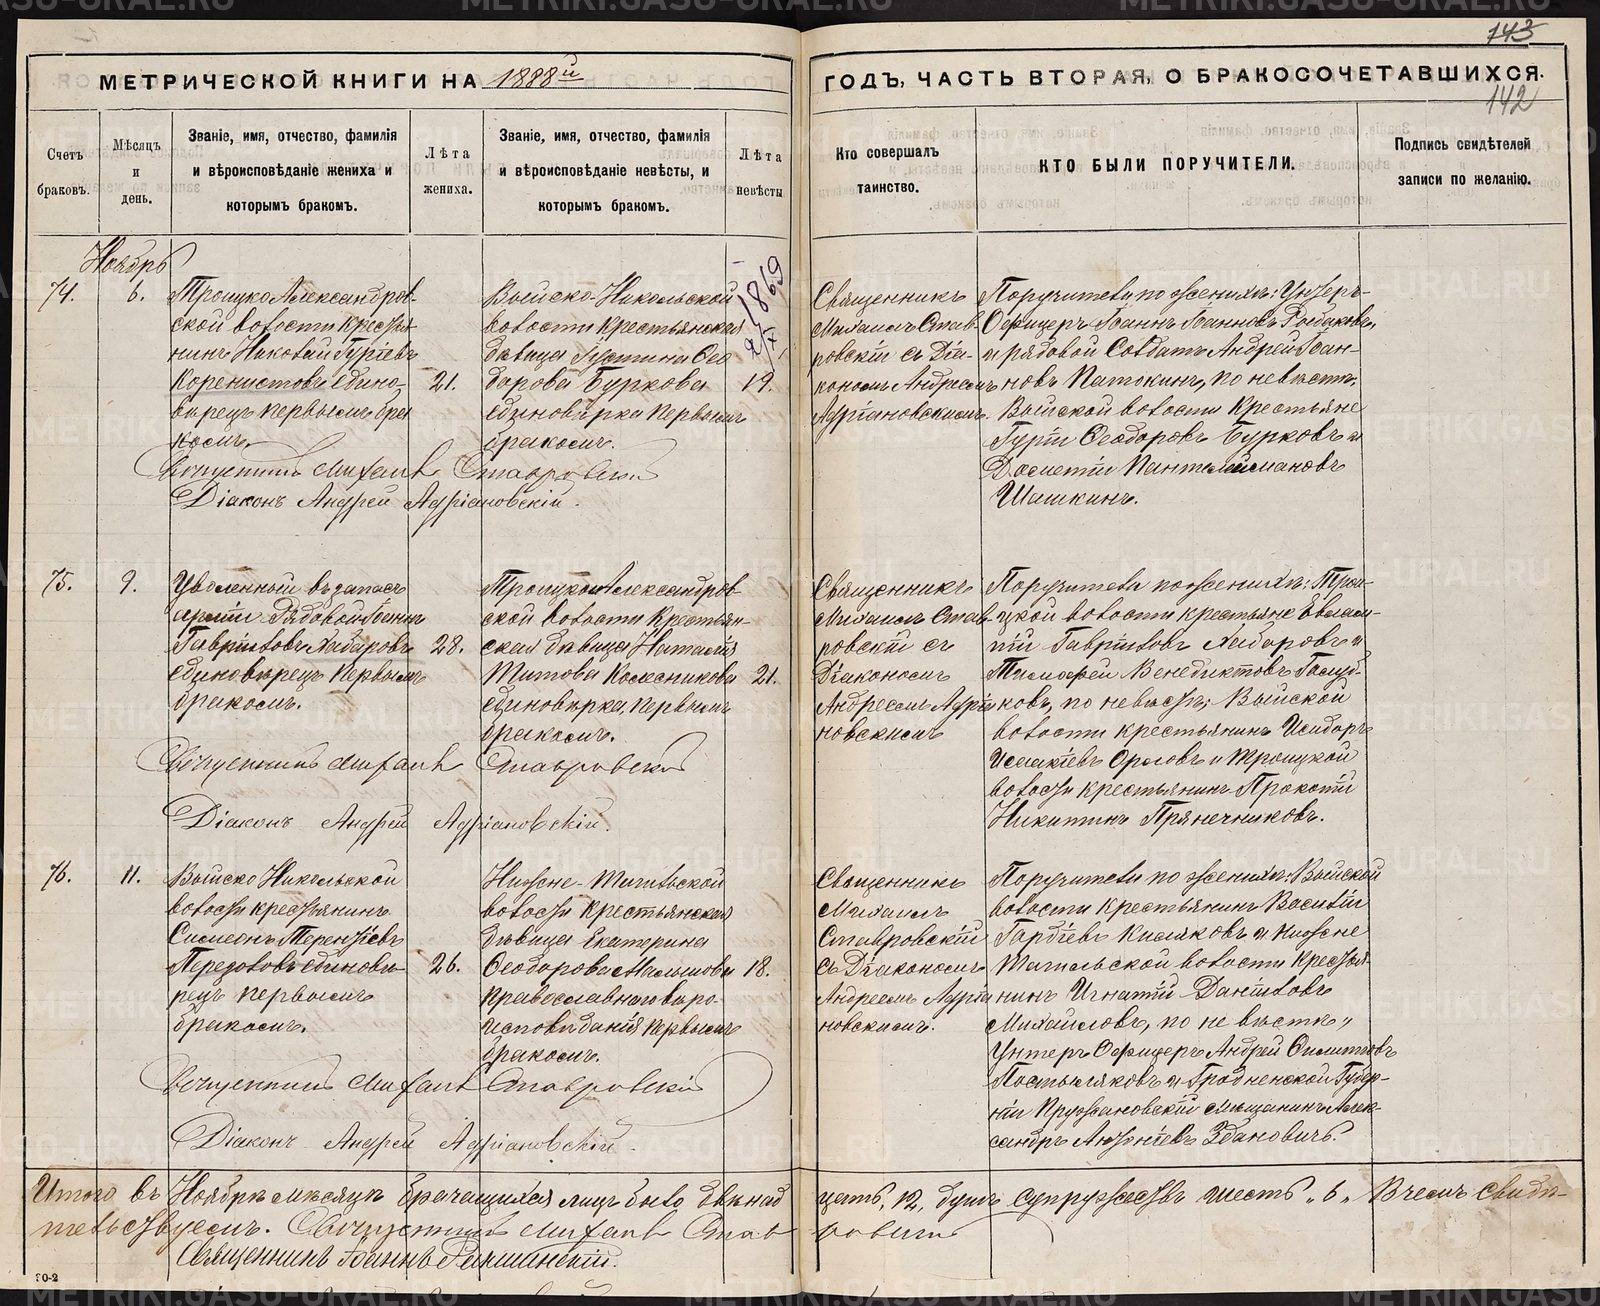 143
МЕТРИЧЕСКОЙ КНИГИ НА 1888й
ГОДЪ, ЧАСТЬ ВТОРАЯ, О БРАКОСОЧЕТАВШИХСЯ.
142
Счетъ
браковъ.
Мѣсяцъ
и
день.
Званіе, имя, отчество, фамилія
и вѣроисповѣданіе жениха и
которымъ бракомъ.
Лѣта
жениха.
Званіе, имя, отчество, фамилія
и вѣроисповѣданіе невѣсты, и
которымъ бракомъ.
Лѣта
невѣсты
Кто совершалъ
таинство.
КТО БЫЛИ ПОРУЧИТЕЛИ.
Подпись свидѣтелей
записи по желанію.
Ноябрь
74.
6.
Троицко Александров-
ской волости крестья-
нинъ Николай Гуріевъ
Коренистовъ едино-
вѣрецъ первымъ бра
комъ.
21.
Выйско-Никольской
волости крестьянская
дѣвица Іустина Ѳео
дорова Буркова
единовѣрка первымъ
бракомъ.
1869
19.
Священникъ
Михаилъ Став-
ровскій съ Діа-
кономъ Андреемъ
Адріановскимъ.
Поручители по женихѣ: Унтеръ-
Офицеръ Іоаннъ Іоанновъ
и рядовой Солдатъ Андрей Іоан-
новъ Патокинъ, по невѣстѣ,
Выйской волости крестьяне
Гурій Ѳеодоровъ Бурковъ и
Пантелеймоновъ
Шашкинъ.
Священникъ Михаилъ Ставровскій
Діаконъ Андрей Адріановскій.
75.
9.
Уволенный въ запасъ
арміи Рядовой Іоаннъ
Гавріиловъ Хабаровъ
единовѣрецъ первымъ
бракомъ.
28.
Троицко Александров-
ской волости крестьян-
ская дѣвица Наталія
Титова Колесникова
единовѣрка, первымъ
бракомъ.
21.
Священникъ
Михаилъ Став-
ровскій съ
Діакономъ
Андреемъ Адріа-
новскимъ
Поручители по женихѣ: Трои-
цкой волости крестьяне Евлам-
пій Гавріиловъ Хабаровъ и
Тимофей Венедиктовъ Голуб-
ковъ, по невѣстѣ; Выйской
волости крестьянинъ Исидоръ
Исаакіевъ Орловъ и Троицкой
волости крестьянинъ Прокопій
Никитинъ Прянечниковъ.
Священникъ Михаилъ Ставровскій
Діаконъ Андрей Адріановскій.
76.
11.
Выйско Никольской
волости крестьянинъ
Симеонъ Терентіевъ
Перезоловъ единовѣ-
рецъ первымъ
бракомъ.
26.
Нижне-Тагильской
волости крестьянская
дѣвица Екатерина
Ѳеодорова Малышова
православнаго вѣро-
исповѣданія первымъ
бракомъ.
18.
Священникъ
Михаилъ
Ставровскій
съ Діакономъ
Андреемъ Адріа
новскимъ.
Поручители по женихѣ: Выйской
волости крестьянинъ Василій
Гордіевъ Кисляковъ и Нижне
Тагильской волости крестья-
нинъ Игнатій Даниловъ
Михайловъ, по невѣстѣ,,
Унтеръ Офицеръ Андрей Филиповъ
Постыляковъ и Гродненской Губер-
ніи Пружановскій мѣщанинъ Алек-
сандръ Антоніевъ Здановичъ.
Священникъ Михаилъ Ставровскій
Діаконъ Андрей Адріановскій.
Итого въ Ноябрѣ мѣсяцѣ брачащихся лицъ было двѣнад
цать, 12, душъ супружествъ шесть „6„ В чемъ свидѣ-
тельствуемъ. Священникъ Михаилъ Став
ровскій
Священникъ Іоаннъ
30-2
METRIKI.GASO-URAL.RU